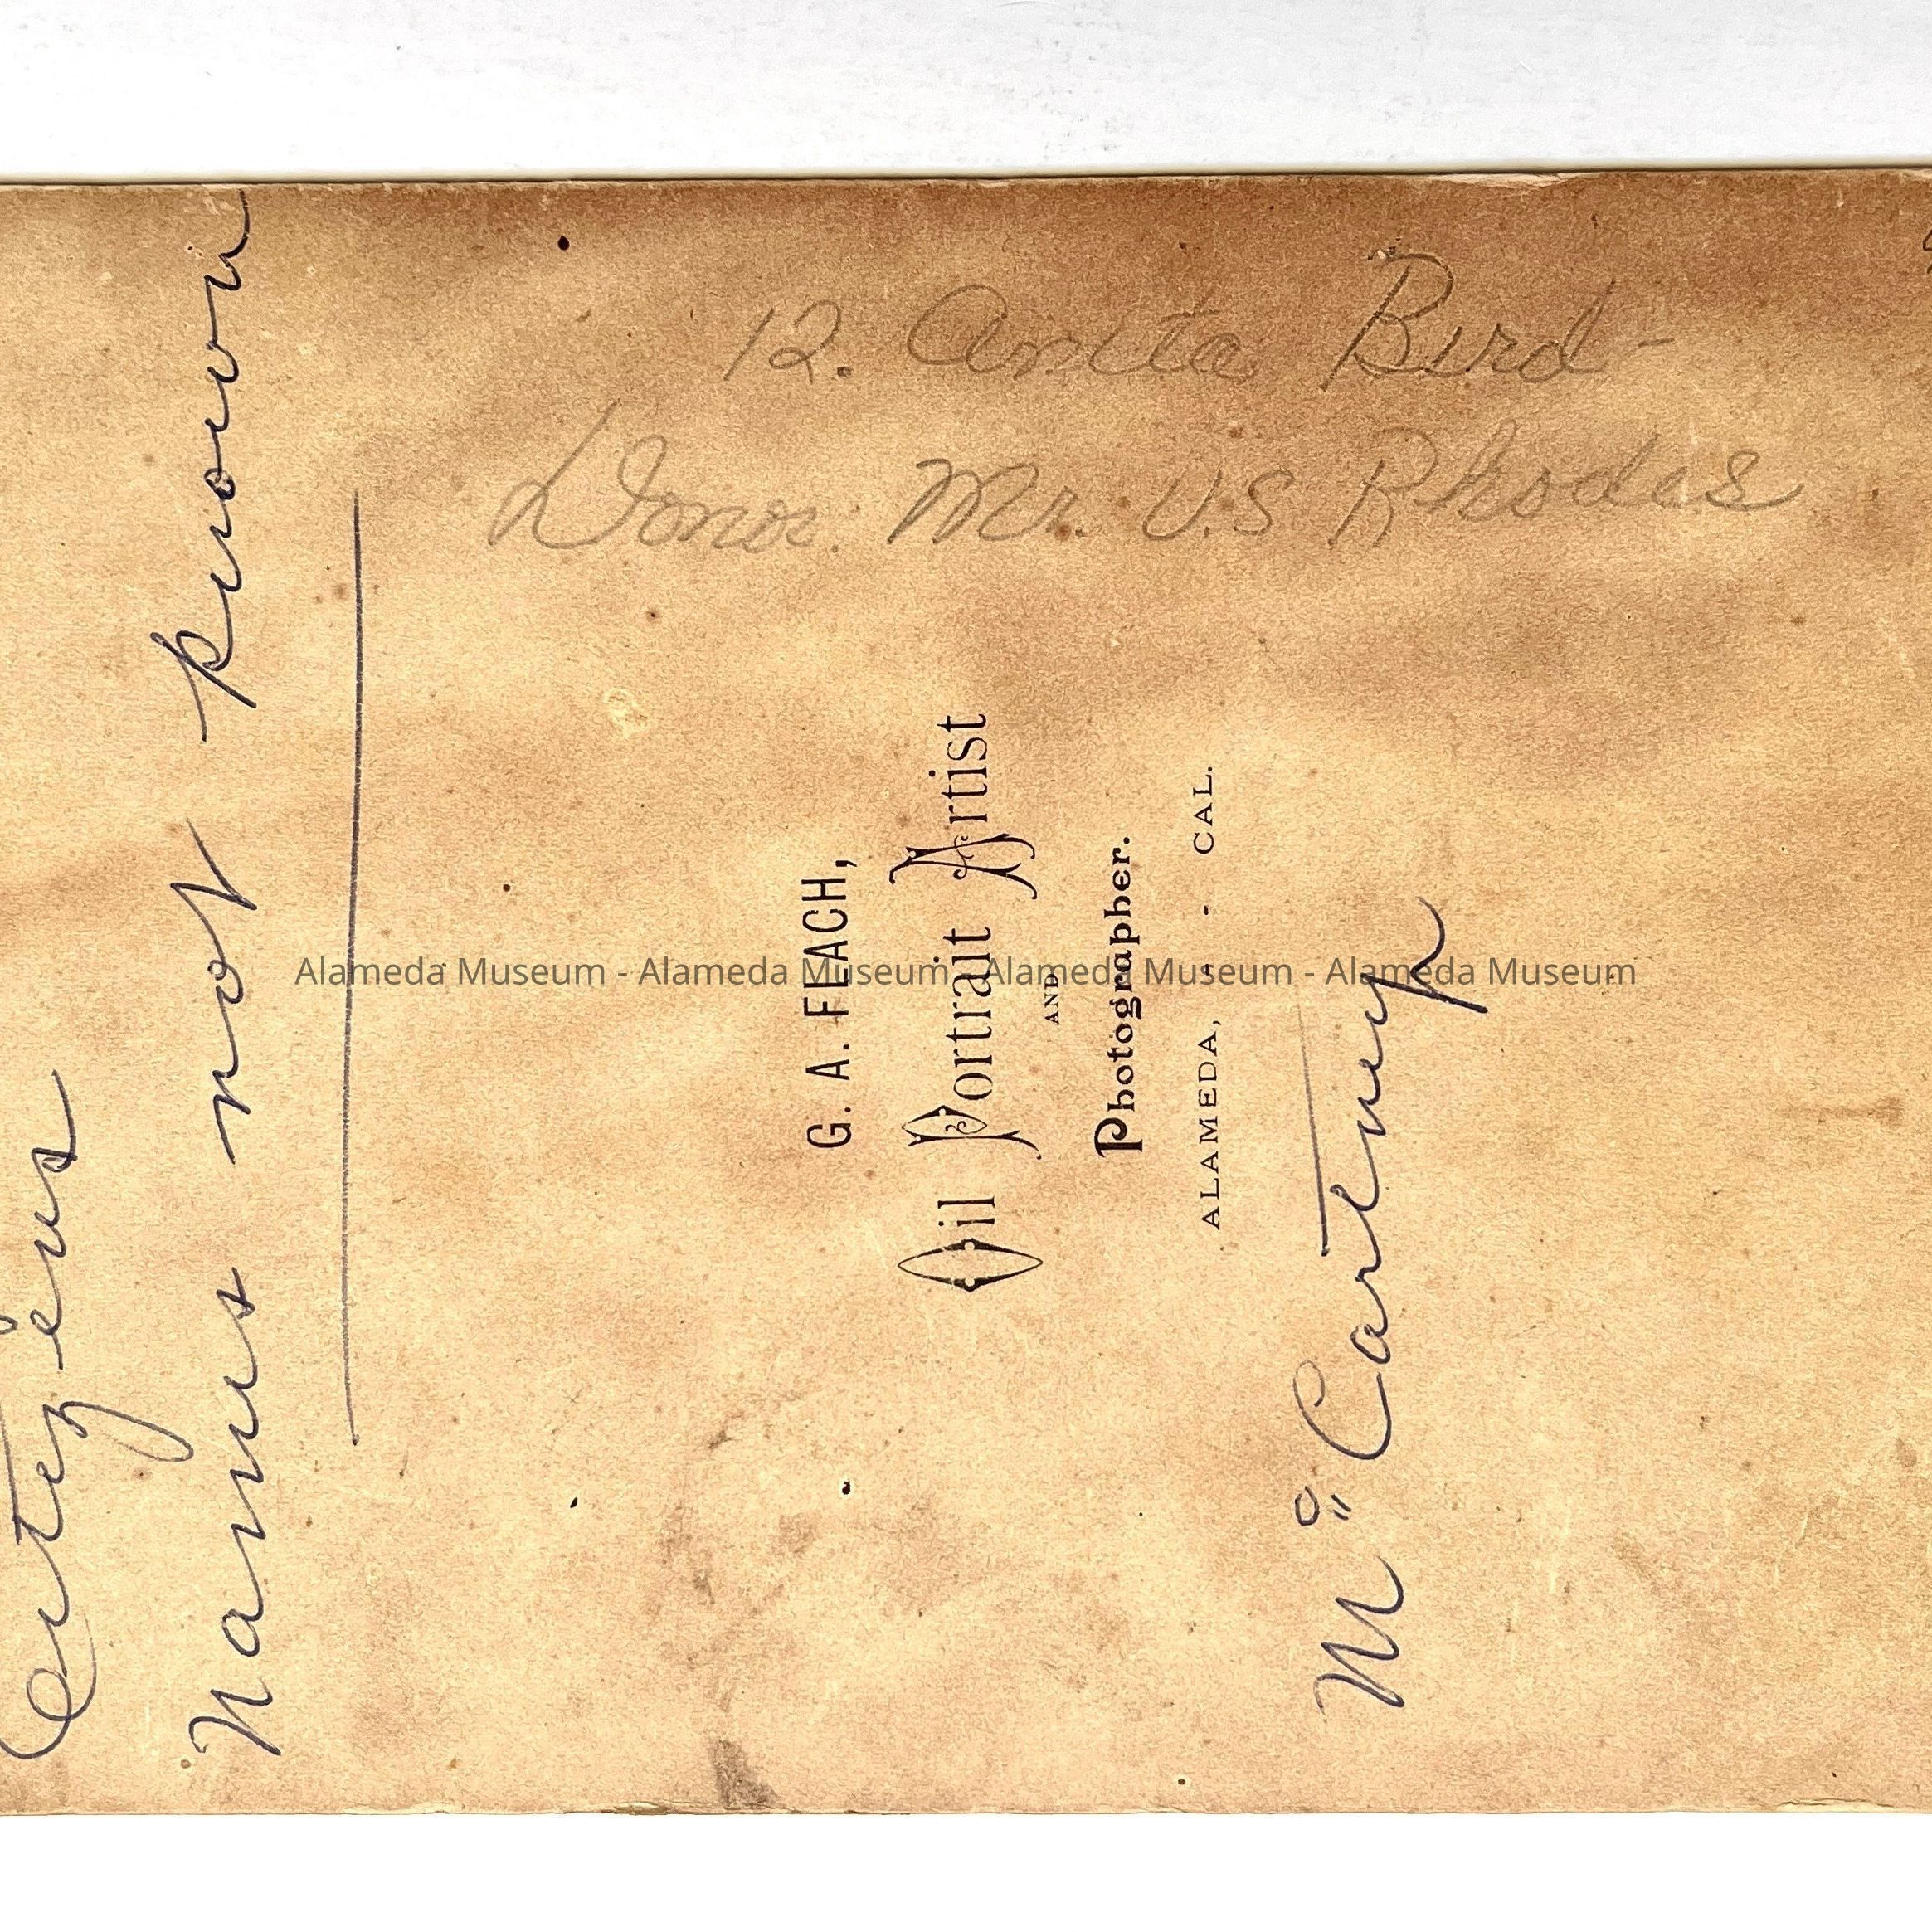 Citizens
Names not known
12. Anita Bird -
Donor. Mr. U.S Rhodes
G. A. FLACH,
Oil Portrait Artist
AND
Photographer.
ALAMEDA, - - CAL.
Mc Cartney
Alameda Museum - Alameda Museum - Alameda Museum - Alameda Museum